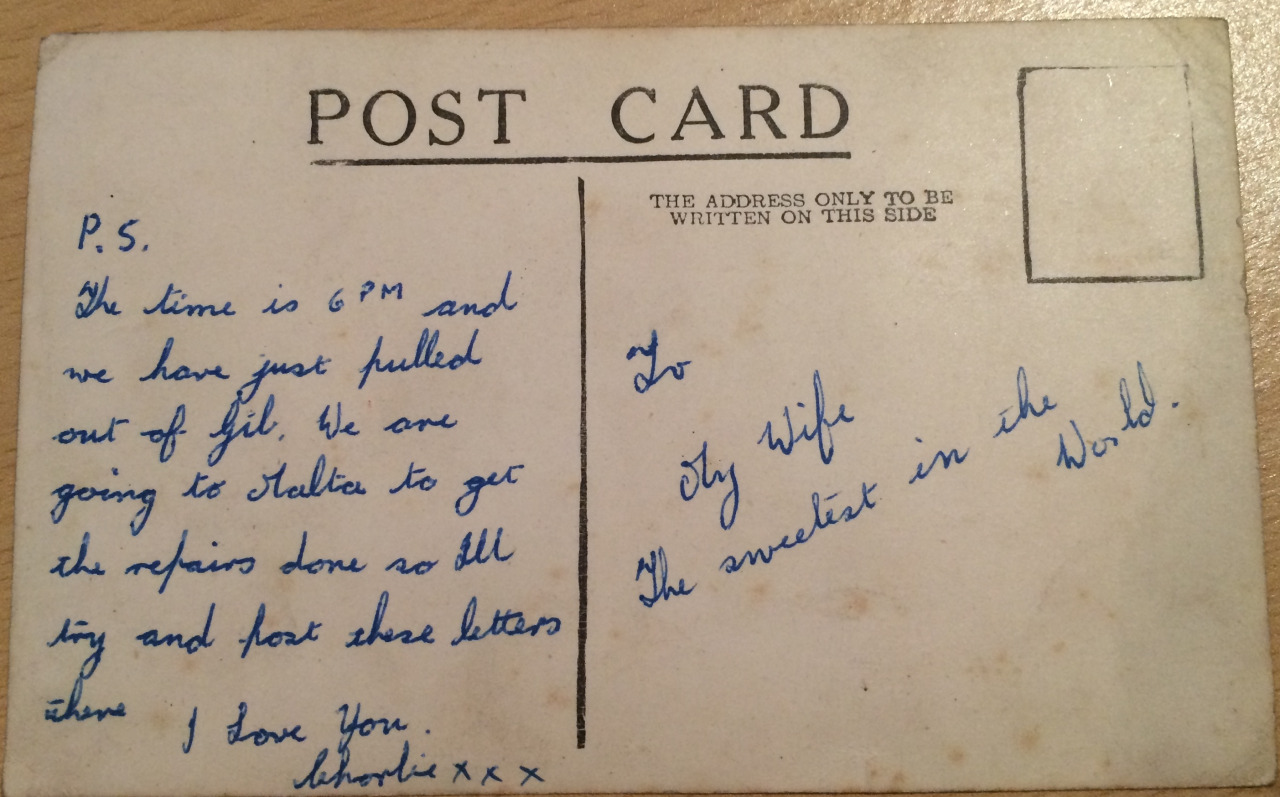 POST CARD
THE ADDRESS ONLY TO BE
WRITTEN ON THIS SIDE
P.S.
The time is 6 PM and
we have just pulled
out of Gib. We are
going to Malta to get
the repairs done so Ill
try and post these letters
there
I Love You.
Charlie x x x
To
My Wife
The sweetest in the
World.